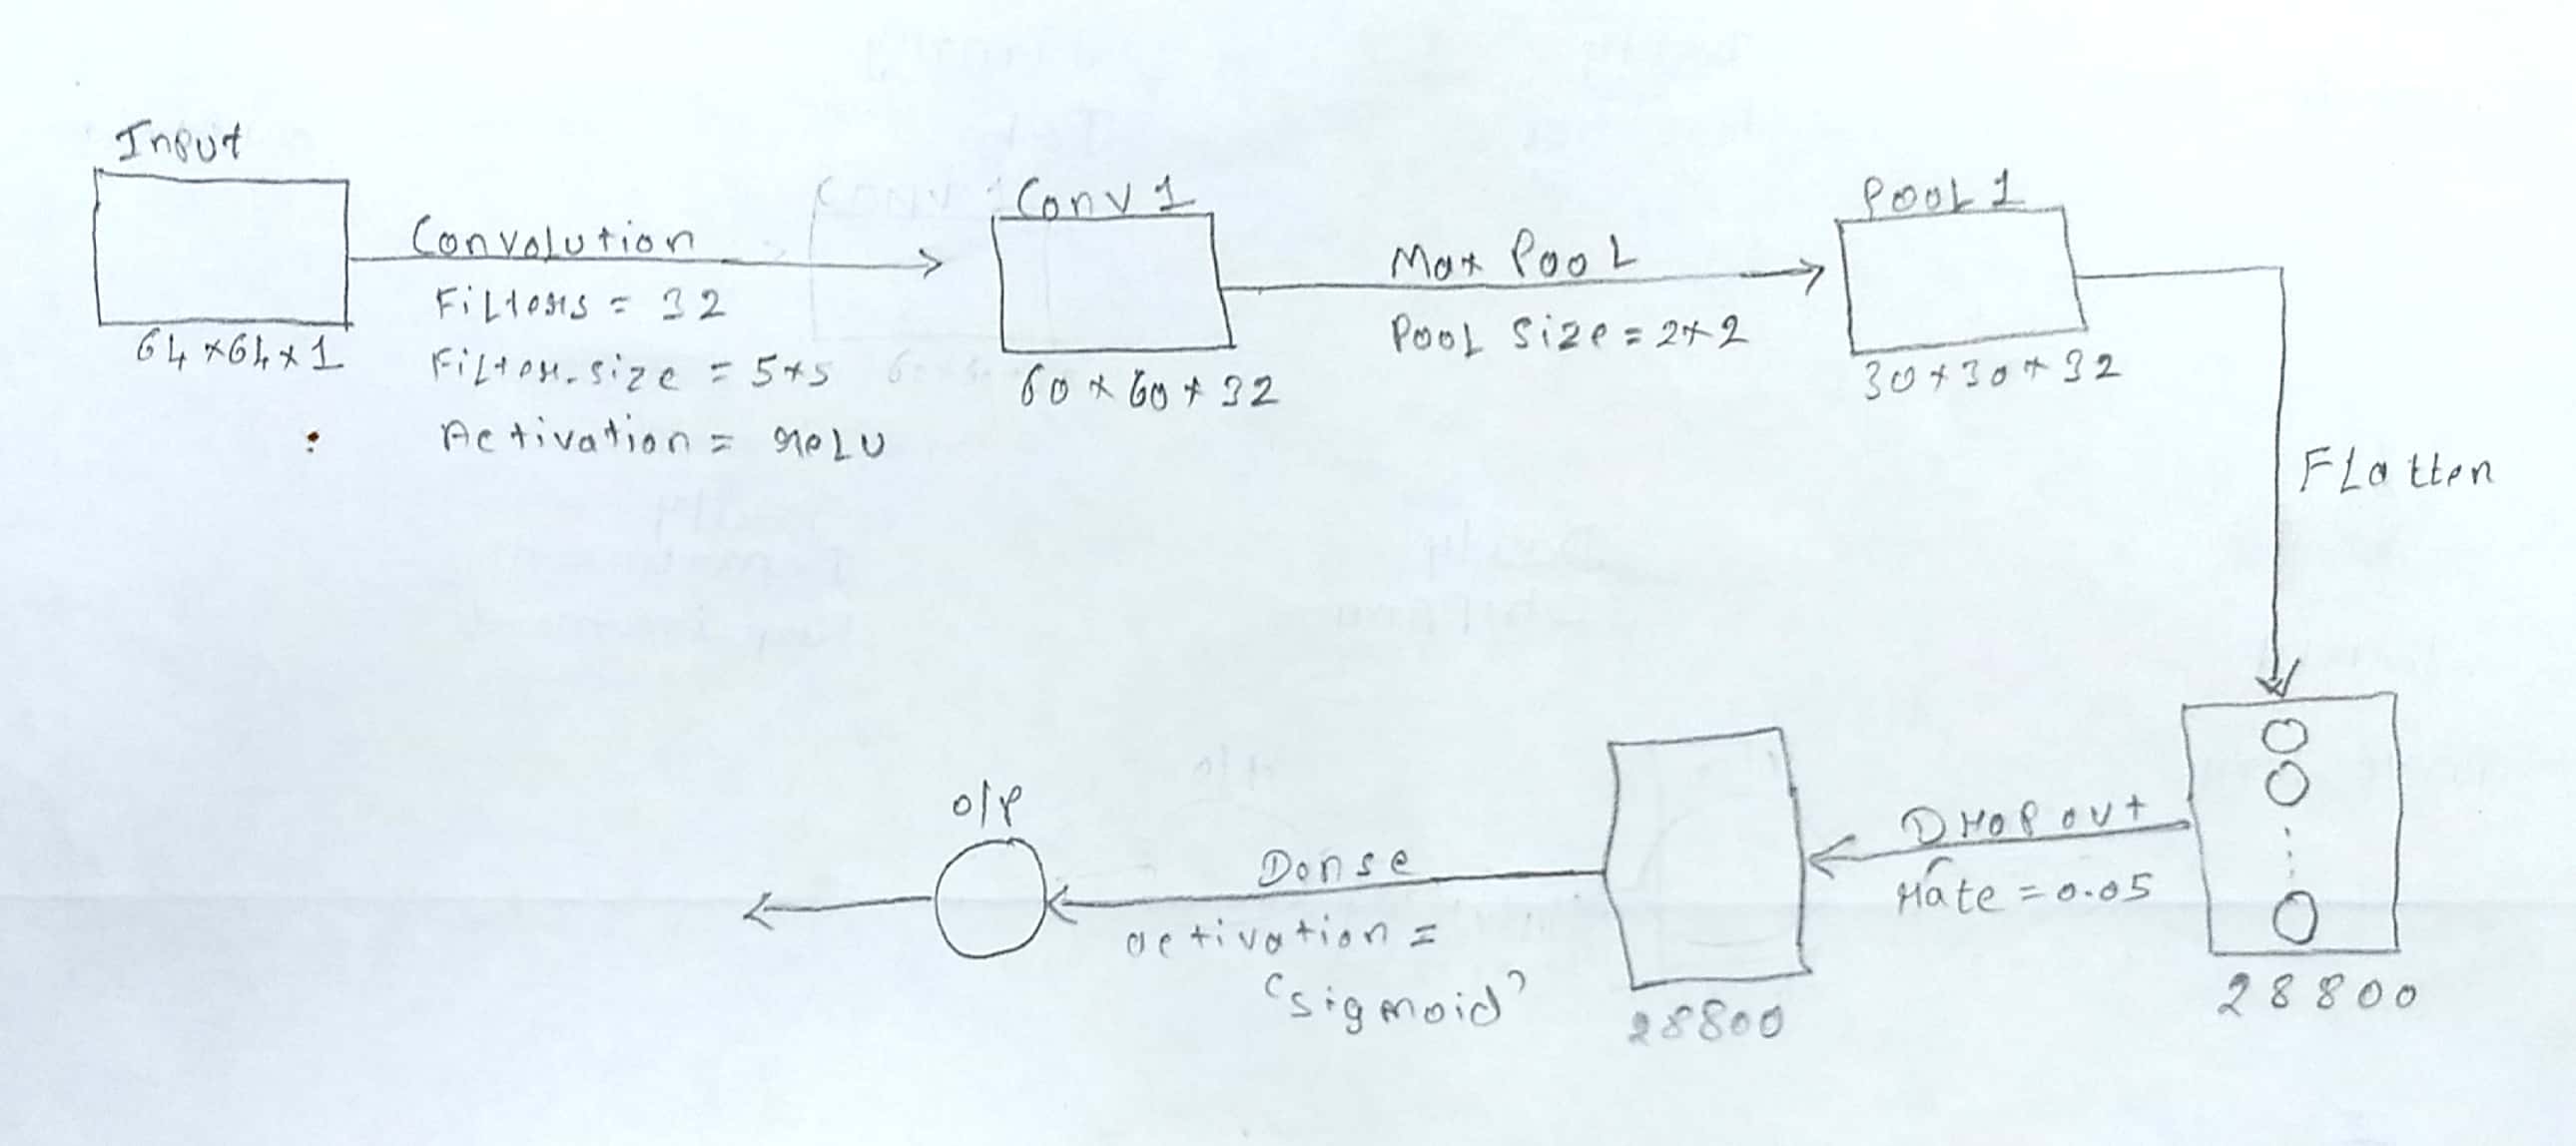 Input
64×64×1
Convolution
Filters = 32
Filter-size = 5×5
Activation = reLU
Conv 1
60×60×32
Max Pool
Pool Size = 2×2
Pool 1
30×30×32
Flatten
28800
Dropout
rate = 0.05
28800
Dense
activation =
'sigmoid'
o/p